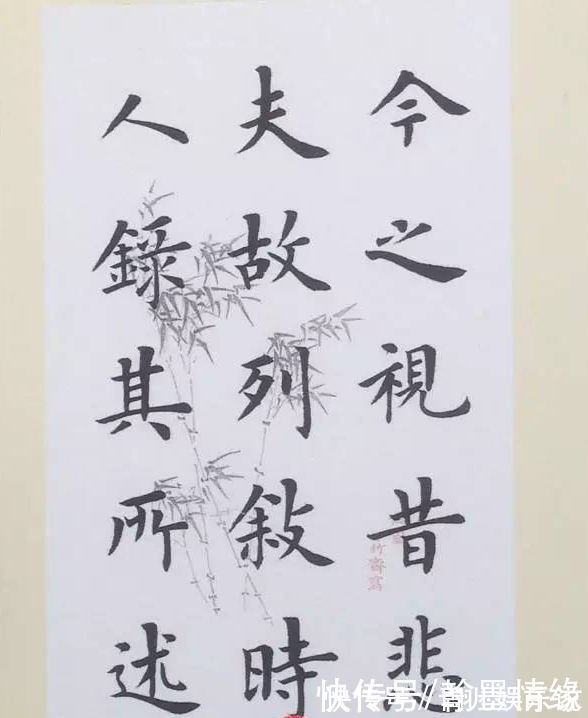 今之視昔悲
夫故列敘時
人錄其所述
竹齋寫
快传号/翰墨情缘